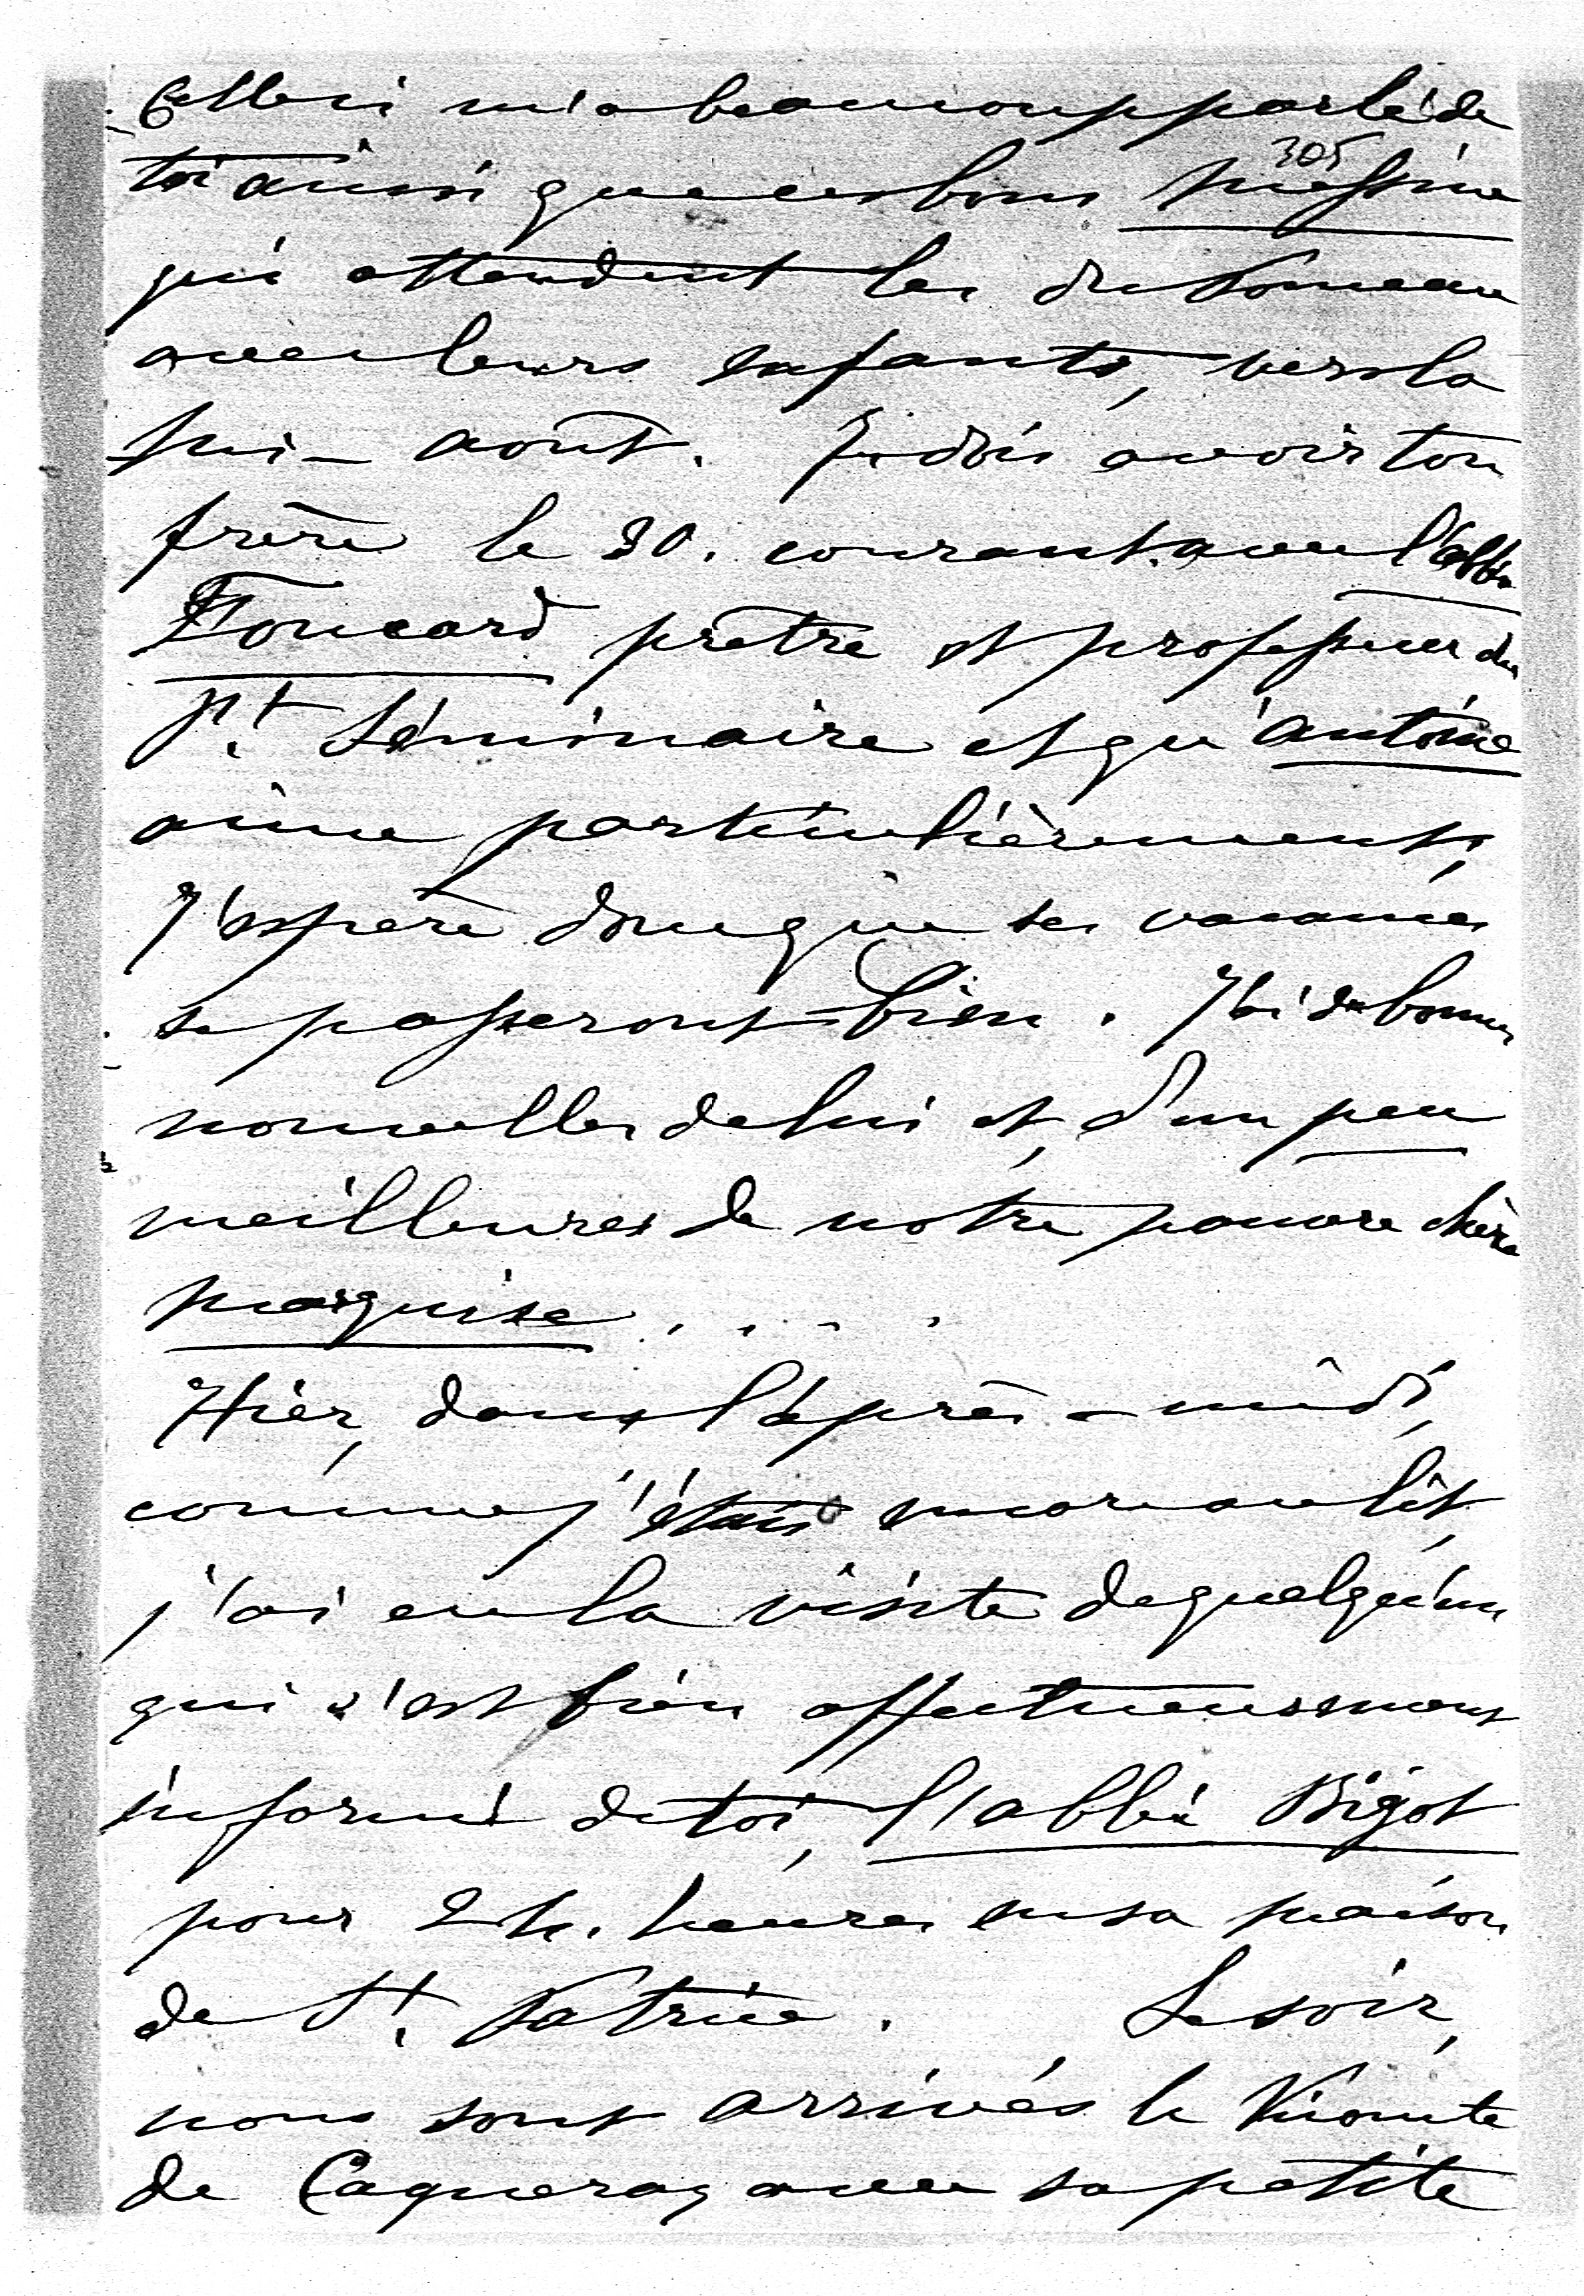 Celle-ci m'a beaucoup parlé de
305
toi ainsi que ces bons Messine
qui attendent les du Ponceau
avec leurs enfants, vers la
mi-août. Je dois avoir ton
frère le 30. courant avec l'abbé
Foucard prêtre et professeur du
Pt. Séminaire et qu'Antoine
aime particulièrement,
J'espère donc que ses vacances
se passeront bien. J'ai de bonnes
nouvelles de lui et, d'un peu
meilleures de notre pauvre chère
Marquise . . . .
Hier, dans l'après-midi,
comme j'étais encore au lit,
j'ai eu la visite de quelqu'un
qui s'est bien affectueusement
informé de toi, l'abbé Bigot
pour 24. heures en sa maison
de St. Patrice. Le soir,
nous sont arrivés le Vicomte
de Caqueray avec sa petite